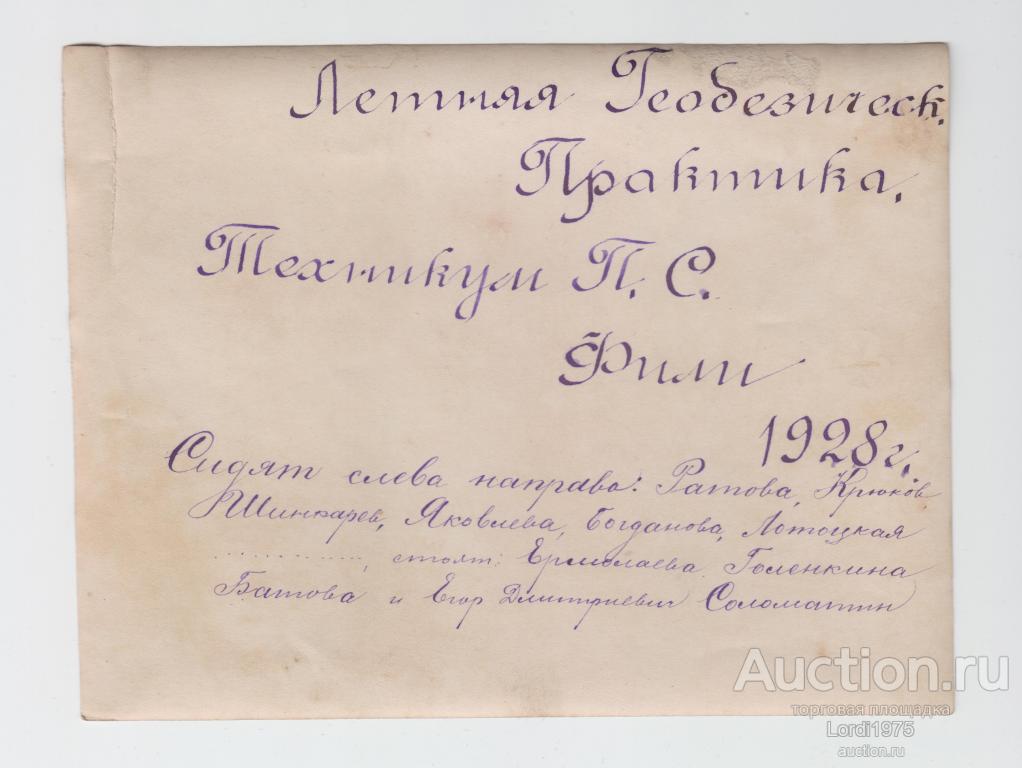 Летняя Геодезическ.
Практика.
Техникум П. С.
Фили
1928 г.
Сидят слева направо: Ратова, Крюков,
Шинкарев, Яковлева, Богданова, Лотоцкая
............., стоят: Ермолаева Голенкина
Батова и Егор Дмитриевич Соломатин
Auction.ru
торговая площадка
Lordi1975
auction.ru